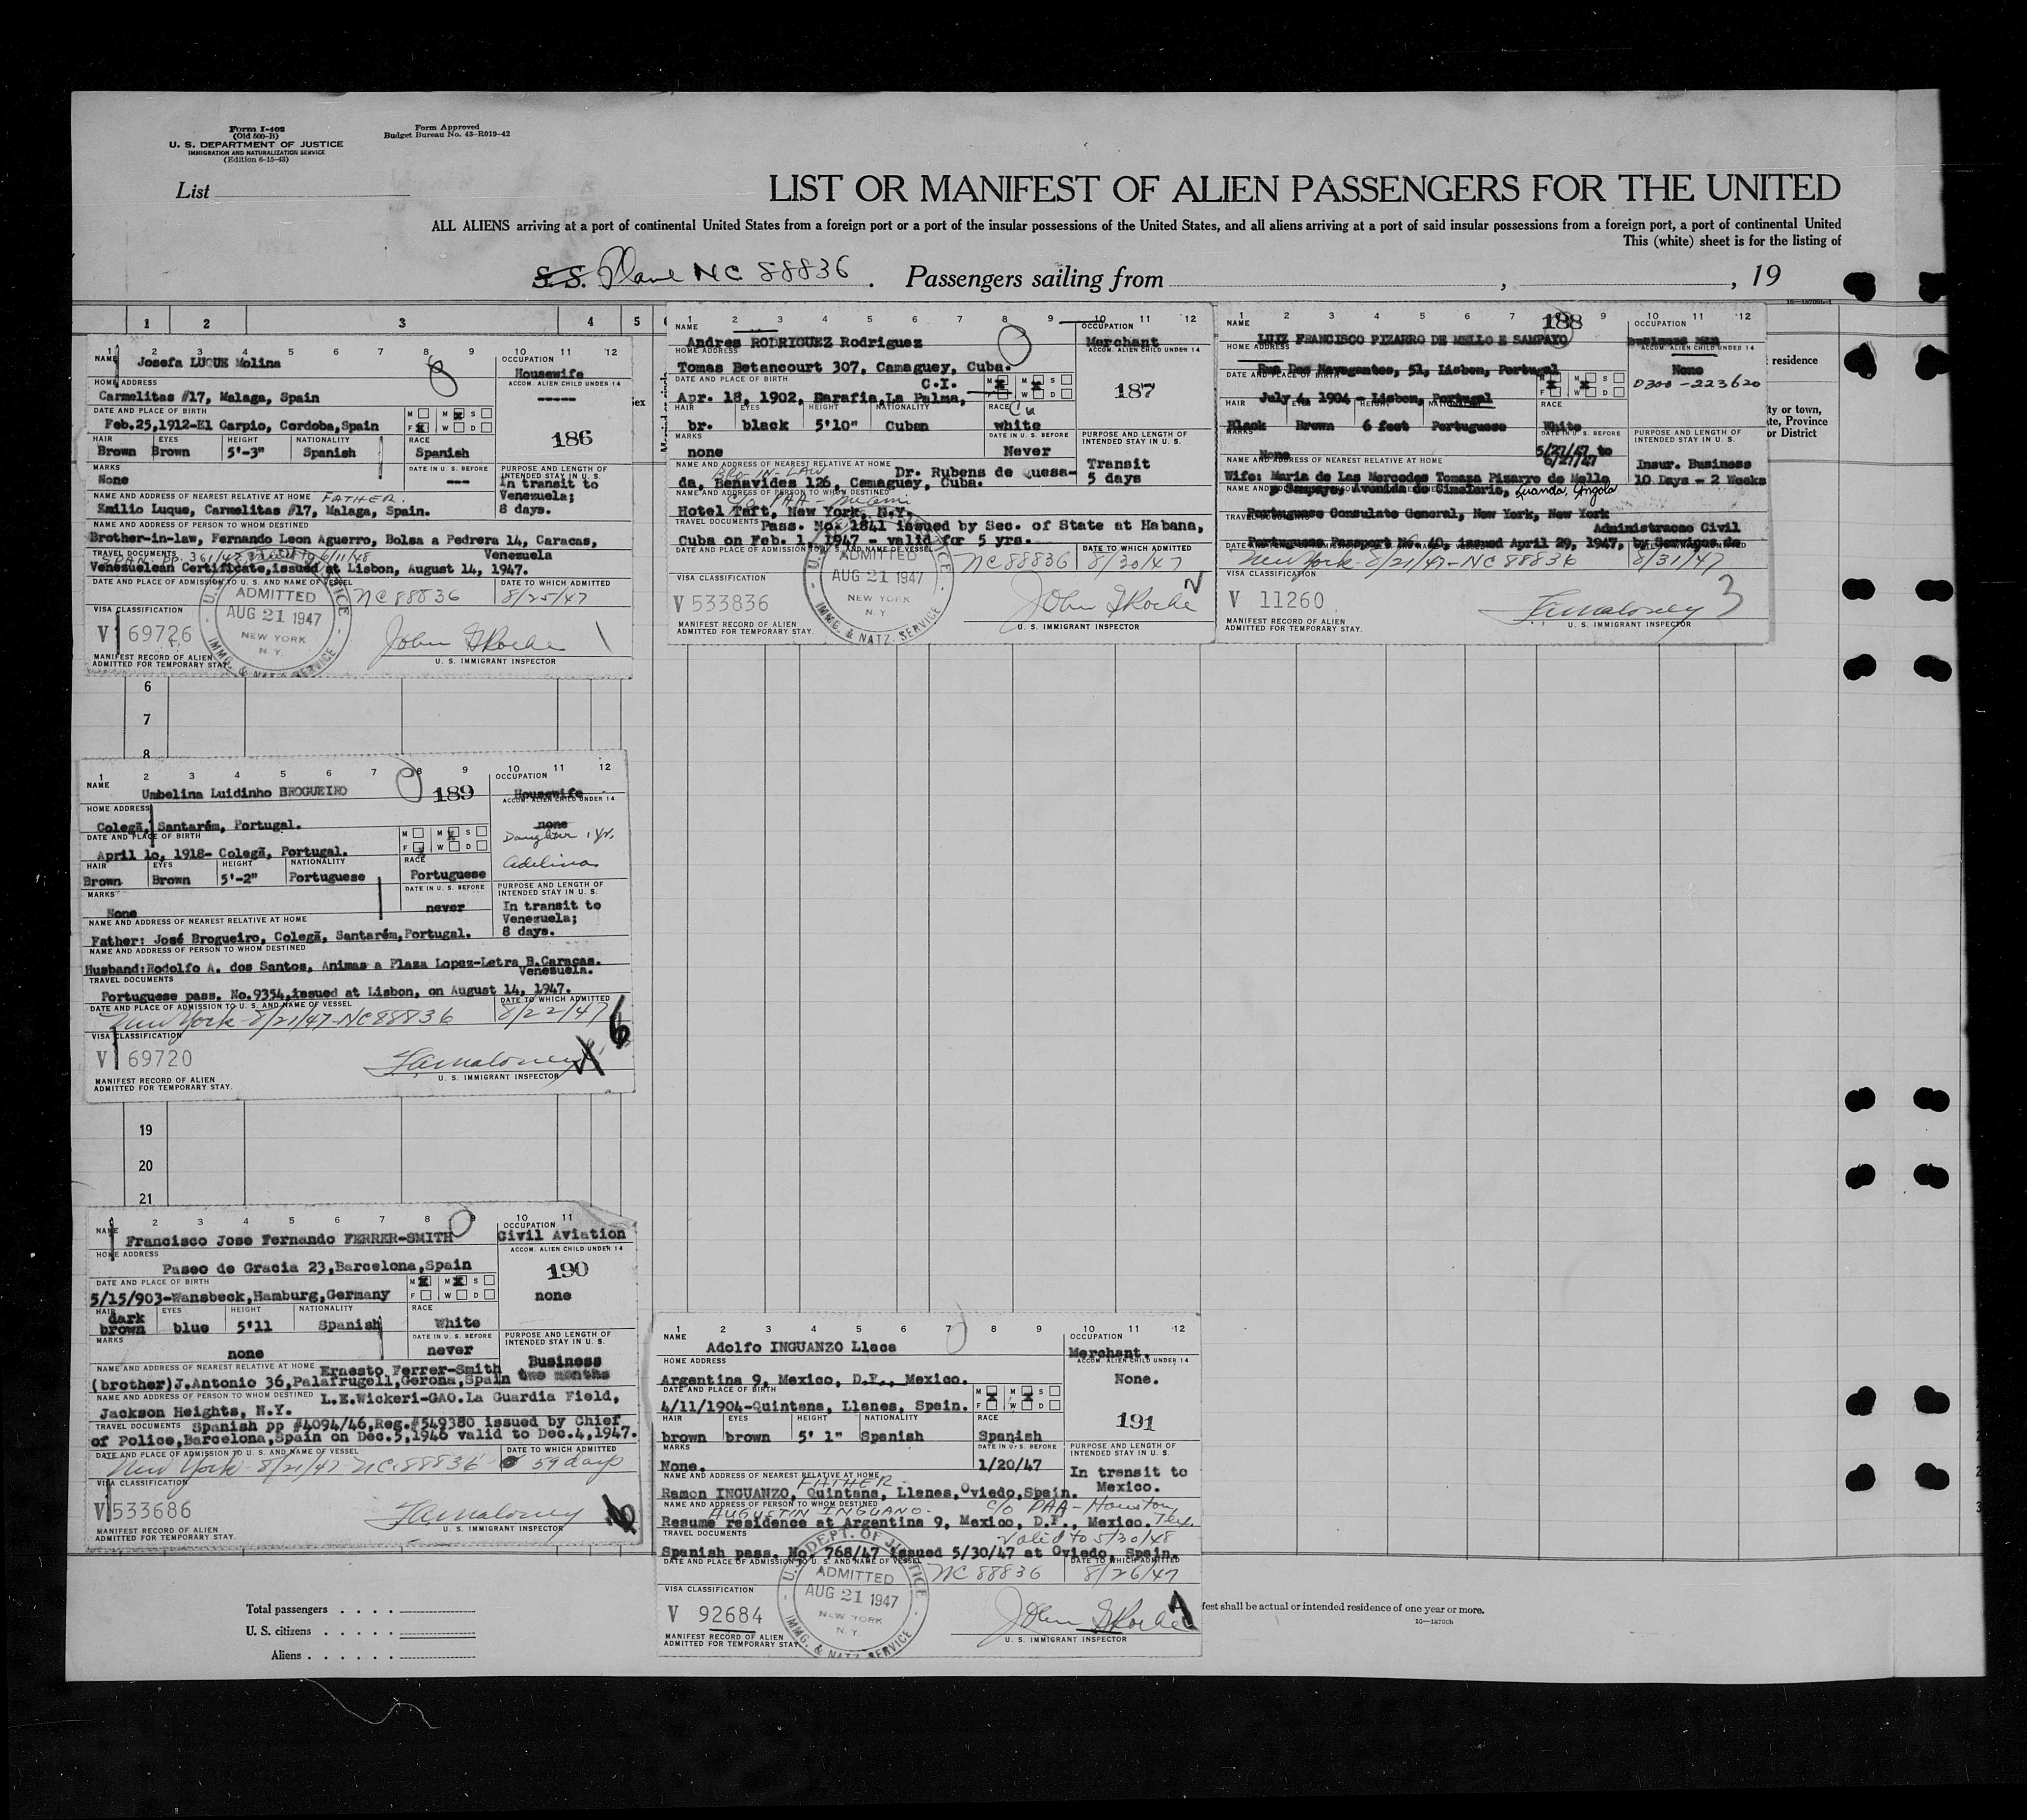 Form I-402
(Old 500-B)
U. S. DEPARTMENT OF JUSTICE
IMMIGRATION AND NATURALIZATION SERVICE
(Edition 6-15-43)
Form Approved
Budget Bureau No. 43-R019-42
List
LIST OR MANIFEST OF ALIEN PASSENGERS FOR THE UNITED
ALL ALIENS arriving at a port of continental United States from a foreign port or a port of the insular possessions of the United States, and all aliens arriving at a port of said insular possessions from a foreign port, a port of continental United
This (white) sheet is for the listing of
S.S. Plane NC 88836. Passengers sailing from , 19
1 2 3 4 5
residence
ty or town,
te, Province
or District
1 2 3 4 5 6 7 8 10 11 12
NAME Josefa LUQUE Molina
OCCUPATION
Housewife
HOME ADDRESS
ACCOM. ALIEN CHILD UNDER 14
Carmelitas #17, Malaga, Spain
-----
DATE AND PLACE OF BIRTH
M M S
Feb.25,1912-El Carpio, Cordoba,Spain
F W D
186
HAIR EYES HEIGHT NATIONALITY RACE
Brown Brown 5'-3" Spanish Spanish
MARKS DATE IN U. S. BEFORE PURPOSE AND LENGTH OF INTENDED STAY IN U. S.
None --- In transit to
Venezuela;
8 days.
NAME AND ADDRESS OF NEAREST RELATIVE AT HOME FATHER.
Emilio Luque, Carmelitas #17, Malaga, Spain.
NAME AND ADDRESS OF PERSON TO WHOM DESTINED
Brother-in-law, Fernando Leon Aguerro, Bolsa a Pedrera 14, Caracas,
TRAVEL DOCUMENTS Venezuela
Venezuelean Certificate,issued at Lisbon, August 14, 1947.
DATE AND PLACE OF ADMISSION TO U. S. AND NAME OF VESSEL DATE TO WHICH ADMITTED
ADMITTED
AUG 21 1947
NEW YORK
N. Y.
IMMG. & NATZ. SERVICE
NC 88836 8/25/47
VISA CLASSIFICATION
V 69726
John G Roche
MANIFEST RECORD OF ALIEN
ADMITTED FOR TEMPORARY STAY.
U. S. IMMIGRANT INSPECTOR
1 2 3 4 5 6 7 8 9 10 11 12
NAME OCCUPATION
Andres RODRIGUEZ Rodriguez Merchant
HOME ADDRESS ACCOM. ALIEN CHILD UNDER 14
Tomas Betancourt 307, Camaguey, Cuba.
DATE AND PLACE OF BIRTH C.I. M M S
187
Apr. 18, 1902, Barafia,La Palma, F W D
HAIR EYES HEIGHT NATIONALITY RACE Cu
br. black 5'10" Cuban white
MARKS DATE IN U. S. BEFORE PURPOSE AND LENGTH OF INTENDED STAY IN U. S.
none Never
Transit
5 days
NAME AND ADDRESS OF NEAREST RELATIVE AT HOME Dr. Rubens de Quesa-
BRO-IN-LAW
da, Benavides 126, Camaguey, Cuba.
NAME AND ADDRESS OF PERSON TO WHOM DESTINED
c/o PAA - Miami
Hotel Taft, New York, N.Y.
TRAVEL DOCUMENTS Pass. No. 1841 issued by Sec. of State at Habana,
Cuba on Feb. 1, 1947 - valid for 5 yrs.
DATE AND PLACE OF ADMISSION TO U. S. AND NAME OF VESSEL DATE TO WHICH ADMITTED
ADMITTED
AUG 21 1947
NEW YORK
N. Y.
IMMG. & NATZ. SERVICE
NC 88836 8/20/47
VISA CLASSIFICATION
V 533836
John G Roche
MANIFEST RECORD OF ALIEN
ADMITTED FOR TEMPORARY STAY.
U. S. IMMIGRANT INSPECTOR
1 2 3 4 5 6 7 9 10 11 12
188
NAME OCCUPATION
LUIZ FRANCISCO PIZARRO DE MELLO E SAMPAYO business man
HOME ADDRESS ACCOM. ALIEN CHILD UNDER 14
Rua Dos Navegantes, 51, Lisbon, Portugal None
DATE AND PLACE OF BIRTH
0300-223620
July 4, 1904 - Lisbon, Portugal
HAIR EYES HEIGHT NATIONALITY RACE
Black Brown 6 feet Portuguese White
MARKS DATE IN U. S. BEFORE PURPOSE AND LENGTH OF INTENDED STAY IN U. S.
None 5/27/47 to
6/27/47
Insur. Business
10 Days - 2 Weeks
Wife: Maria de Las Mercedes Tomaza Pizarro de Mello
e Sampayo, Avenida do Cimeterio, Luanda, Angola
Portuguese Consulate General, New York, New York
TRAVEL DOCUMENTS Administracao Civil
Portuguese Passport No. 40, issued April 29, 1947, by Servicos de
New York - 8/21/47 - NC 88836 8/31/47
VISA CLASSIFICATION
V 11260
F.A. Maloney 3
MANIFEST RECORD OF ALIEN
ADMITTED FOR TEMPORARY STAY.
U. S. IMMIGRANT INSPECTOR
6
7
8
1 2 3 4 5 6 7 8 9 10 11 12
NAME OCCUPATION
Umbelina Luidinho BROGUEIRO 189 Housewife
HOME ADDRESS ACCOM. ALIEN CHILD UNDER 14
Colegã, Santarém, Portugal. none
DATE AND PLACE OF BIRTH M M S
Daughter 1 yr.
April 1o, 1918- Colegã, Portugal. F W D
Adelina
HAIR EYES HEIGHT NATIONALITY RACE
Brown Brown 5'-2" Portuguese Portuguese
MARKS DATE IN U. S. BEFORE PURPOSE AND LENGTH OF INTENDED STAY IN U. S.
None never In transit to
Venezuela;
8 days.
NAME AND ADDRESS OF NEAREST RELATIVE AT HOME
Father: José Brogueiro, Colegã, Santarém,Portugal.
NAME AND ADDRESS OF PERSON TO WHOM DESTINED
Husband:Rodolfo A. dos Santos, Animas a Plaza Lopez-Letra B.Caracas.
Venezuela.
TRAVEL DOCUMENTS
Portuguese pass. No.9354,issued at Lisbon, on August 14, 1947.
DATE AND PLACE OF ADMISSION TO U. S. AND NAME OF VESSEL DATE TO WHICH ADMITTED
New York - 8/21/47 - NC 88836 8/22/47
6
VISA CLASSIFICATION
V 69720
F.A. Maloney
MANIFEST RECORD OF ALIEN
ADMITTED FOR TEMPORARY STAY.
U. S. IMMIGRANT INSPECTOR
19
20
21
2 3 4 5 6 7 8 9 10 11
NAME OCCUPATION
Francisco Jose Fernando FERRER-SMITH Civil Aviation
HOME ADDRESS ACCOM. ALIEN CHILD UNDER 14
Paseo de Gracia 23,Barcelona,Spain
190
DATE AND PLACE OF BIRTH M M S
5/15/903-Wansbeck,Hamburg,Germany F W D none
HAIR EYES HEIGHT NATIONALITY RACE
dark
brown blue 5'11 Spanish White
MARKS DATE IN U. S. BEFORE PURPOSE AND LENGTH OF INTENDED STAY IN U. S.
none never
Business
two months
NAME AND ADDRESS OF NEAREST RELATIVE AT HOME Ernesto Ferrer-Smith
(brother)J.Antonio 36,Palafrugell,Gerona,Spain
NAME AND ADDRESS OF PERSON TO WHOM DESTINED L.E.Wickeri-GAO.La Guardia Field,
Jackson Heights, N.Y.
TRAVEL DOCUMENTS Spanish pp #4094/46,Reg.#549380 issued by Chief
of Police,Barcelona,Spain on Dec.5,1946 valid to Dec.4,1947.
DATE AND PLACE OF ADMISSION TO U. S. AND NAME OF VESSEL DATE TO WHICH ADMITTED
New York - 8/21/47 - NC 88836 59 days
VISA CLASSIFICATION
V 533686
F.A. Maloney
MANIFEST RECORD OF ALIEN
ADMITTED FOR TEMPORARY STAY.
U. S. IMMIGRANT INSPECTOR
1 2 3 4 5 6 7 8 9 10 11 12
NAME OCCUPATION
Adolfo INGUANZO Llaca Merchant.
HOME ADDRESS ACCOM. ALIEN CHILD UNDER 14
Argentina 9, Mexico, D.F., Mexico. None.
DATE AND PLACE OF BIRTH M M S
4/11/1904-Quintana, Llanes, Spain. F W D
191
HAIR EYES HEIGHT NATIONALITY RACE
brown brown 5' 1" Spanish Spanish
MARKS DATE IN U. S. BEFORE PURPOSE AND LENGTH OF INTENDED STAY IN U. S.
None. 1/20/47 In transit to
Mexico.
NAME AND ADDRESS OF NEAREST RELATIVE AT HOME
FATHER
Ramon INGUANZO, Quintana, Llanes,Oviedo,Spain.
NAME AND ADDRESS OF PERSON TO WHOM DESTINED
AUGUSTIN INGUANO - c/o PAA - Houston, Tex.
Resume residence at Argentina 9, Mexico, D.F., Mexico.
TRAVEL DOCUMENTS Valid to 5/30/48
Spanish pass. No. 768/47 issued 5/30/47 at Oviedo, Spain.
DATE AND PLACE OF ADMISSION TO U. S. AND NAME OF VESSEL DATE TO WHICH ADMITTED
U. S. DEPT. OF JUSTICE
ADMITTED
AUG 21 1947
NEW YORK
N. Y.
IMMG. & NATZ. SERVICE
NC 88836 8/26/47
VISA CLASSIFICATION
V 92684
John G Roche
MANIFEST RECORD OF ALIEN
ADMITTED FOR TEMPORARY STAY.
U. S. IMMIGRANT INSPECTOR
Total passengers
U. S. citizens
Aliens
fest shall be actual or intended residence of one year or more.